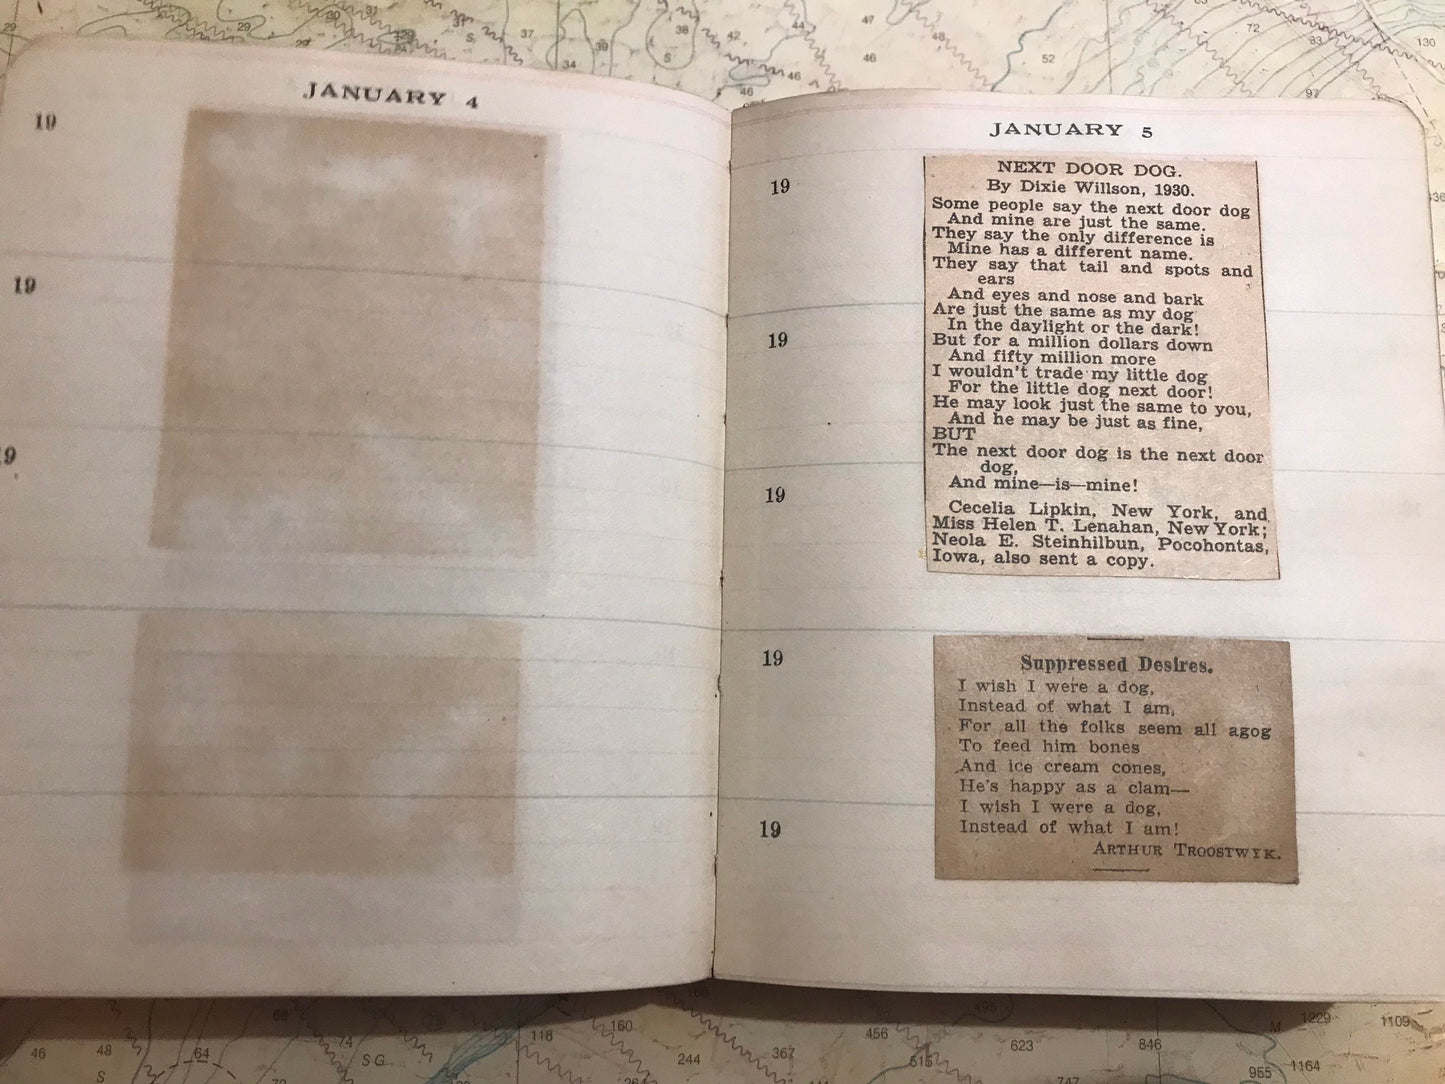 JANUARY 4
19
19
19
JANUARY 5
19
19
19
19
19
NEXT DOOR DOG.
By Dixie Willson, 1930.
Some people say the next door dog
And mine are just the same.
They say the only difference is
Mine has a different name.
They say that tail and spots and
ears
And eyes and nose and bark
Are just the same as my dog
In the daylight or the dark!
But for a million dollars down
And fifty million more
I wouldn't trade my little dog
For the little dog next door!
He may look just the same to you,
And he may be just as fine,
BUT
The next door dog is the next door
dog,
And mine—is—mine!
Cecelia Lipkin, New York, and
Miss Helen T. Lenahan, New York;
Neola E. Steinhilbun, Pocohontas,
Iowa, also sent a copy.
Suppressed Desires.
I wish I were a dog,
Instead of what I am,
For all the folks seem all agog
To feed him bones
And ice cream cones,
He's happy as a clam—
I wish I were a dog,
Instead of what I am!
ARTHUR TROOSTWYK.
29
37
34
39
38
42
44
46
46
47
46
48
52
72
83
97
130
46
48
S
64
68
74
SG
118
160
166
244
367
456
495
515
623
747
846
955
M
1229
1164
1109